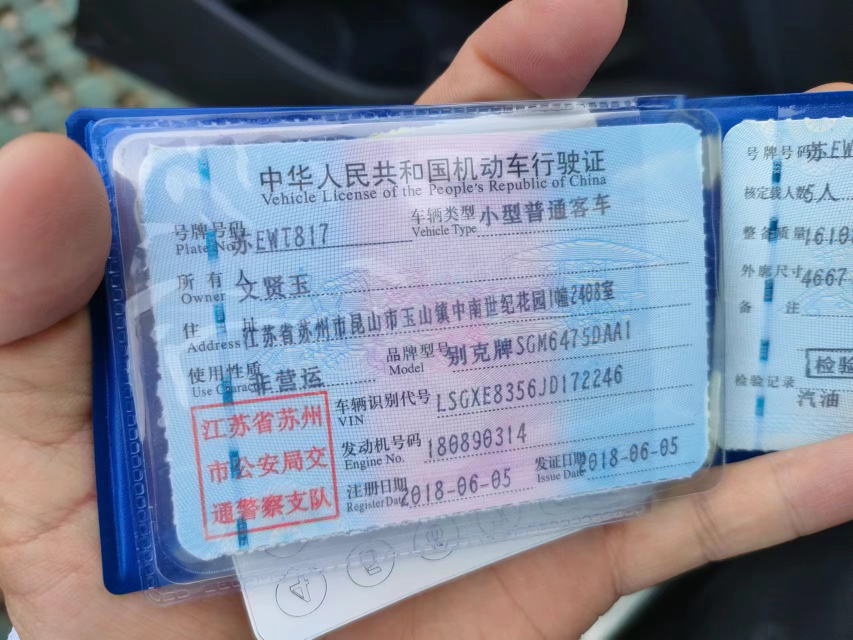 中华人民共和国机动车行驶证
Vehicle License of the People's Republic of China
号牌号码 苏EWT817 车辆类型 小型普通客车
Plate No. Vehicle Type
所有人 文贤玉
Owner
住址 江苏省苏州市昆山市玉山镇中南世纪花园1幢2408室
Address
使用性质 非营运 品牌型号 别克牌SGM6475DAA1
Use Character Model
车辆识别代号 LSGXE8356JD172246
VIN
发动机号码 180890314
Engine No.
注册日期 2018-06-05 发证日期 2018-06-05
Register Date Issue Date
江苏省苏州
市公安局交
通警察支队
号牌号码 苏EW
核定载人数 5人
整备质量 1610
外廓尺寸 4667
备注
检验
检验记录 汽油
4